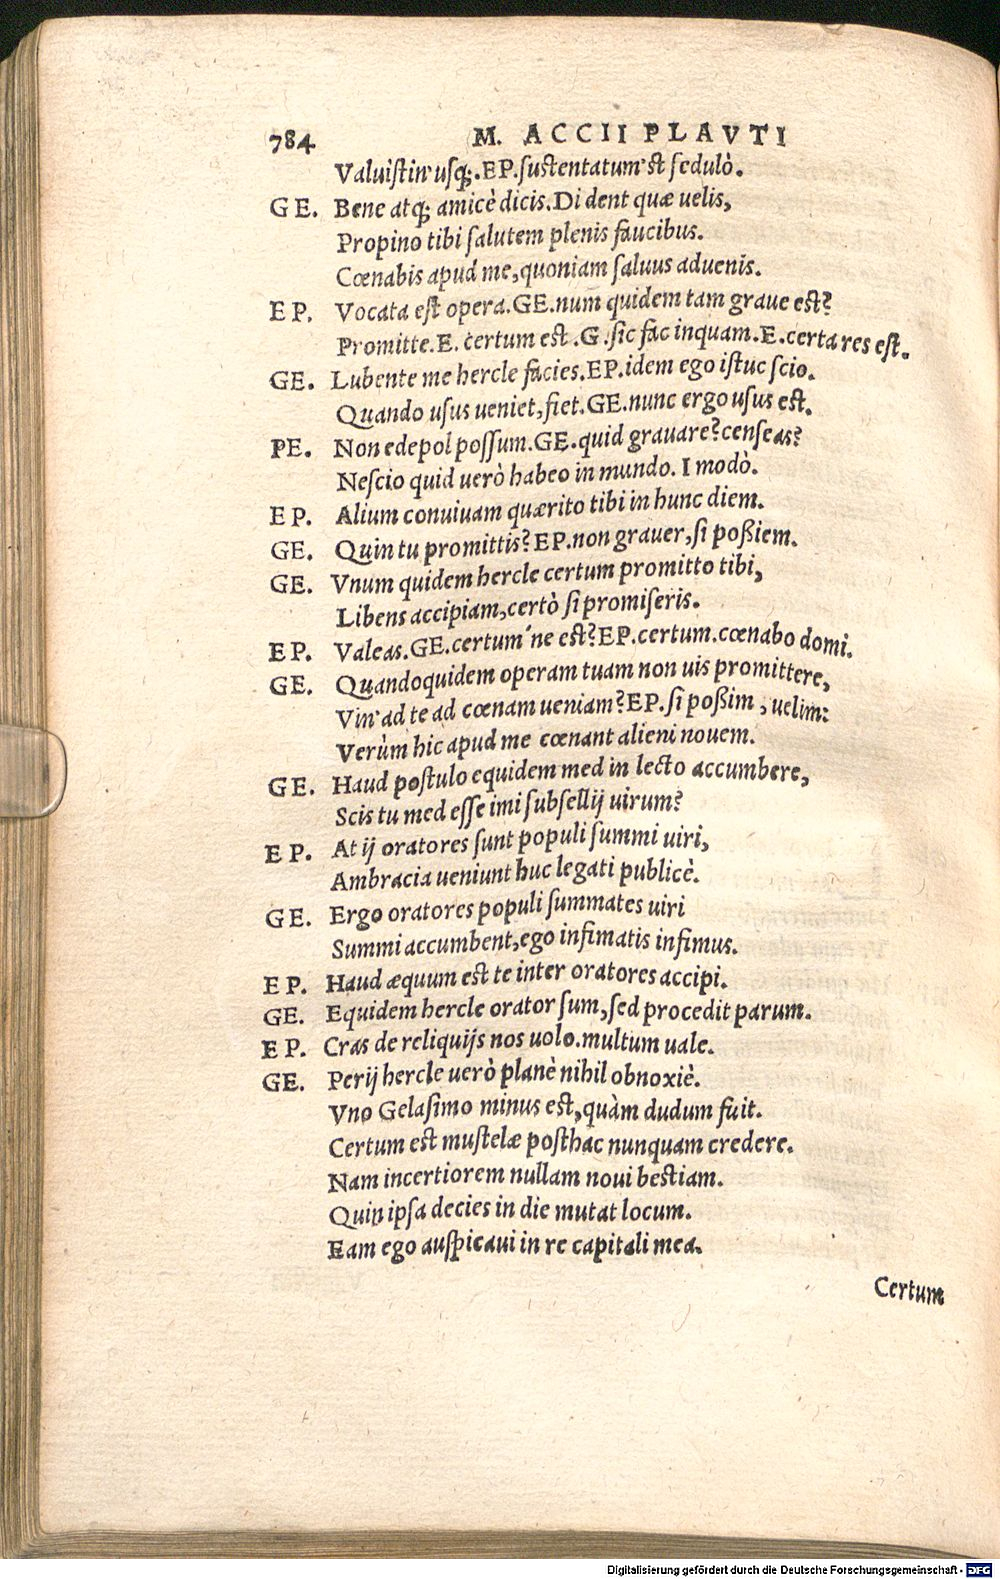 784 M. ACCII PLAVTI
Valuiſtin' uſq;. EP. ſuſtentatum'st ſedulò.
GE. Bene atq; amicè dicis. Di dent quæ uelis,
Propino tibi ſalutem plenis faucibus.
Cœnabis apud me, quoniam ſaluus aduenis.
EP. Vocata eſt opera. GE. num quidem tam graue eſt?
Promitte. E. certum est. G. ſic fac inquam. E. certa res eſt.
GE. Lubente me hercle facies. EP. idem ego iſtuc ſcio.
Quando uſus ueniet, fiet. GE. nunc ergo uſus eſt.
PE. Non edepol poſſum. GE. quid grauare? cenſeas?
Neſcio quid uerò habeo in mundo. I modò.
EP. Alium conuiuam quærito tibi in hunc diem.
GE. Quin tu promittis? EP. non grauer, ſi poßiem.
GE. Vnum quidem hercle certum promitto tibi,
Libens accipiam, certò ſi promiſeris.
EP. Valeas. GE. certum'ne eſt? EP. certum. cœnabo domi.
GE. Quandoquidem operam tuam non uis promittere,
Vin' ad te ad cœnam ueniam? EP. ſi poßim, uelim:
Verùm hic apud me cœnant alieni nouem.
GE. Haud poſtulo equidem med in lecto accumbere,
Scis tu med eſſe imi ſubſellij uirum?
EP. At ij oratores ſunt populi ſummi uiri,
Ambracia ueniunt huc legati publicè.
GE. Ergo oratores populi ſummates uiri
Summi accumbent, ego infimatis infimus.
EP. Haud æquum eſt te inter oratores accipi.
GE. Equidem hercle orator ſum, ſed procedit parum.
EP. Cras de reliquijs nos uolo. multum uale.
GE. Perij hercle uerò planè nihil obnoxiè.
Vno Gelaſimo minus eſt, quàm dudum fuit.
Certum eſt muſtelæ poſthac nunquam credere.
Nam incertiorem nullam noui beſtiam.
Quin ipſa decies in die mutat locum.
Eam ego auſpicaui in re capitali mea.
Certum
Digitalisierung gefördert durch die Deutsche Forschungsgemeinschaft - DFG